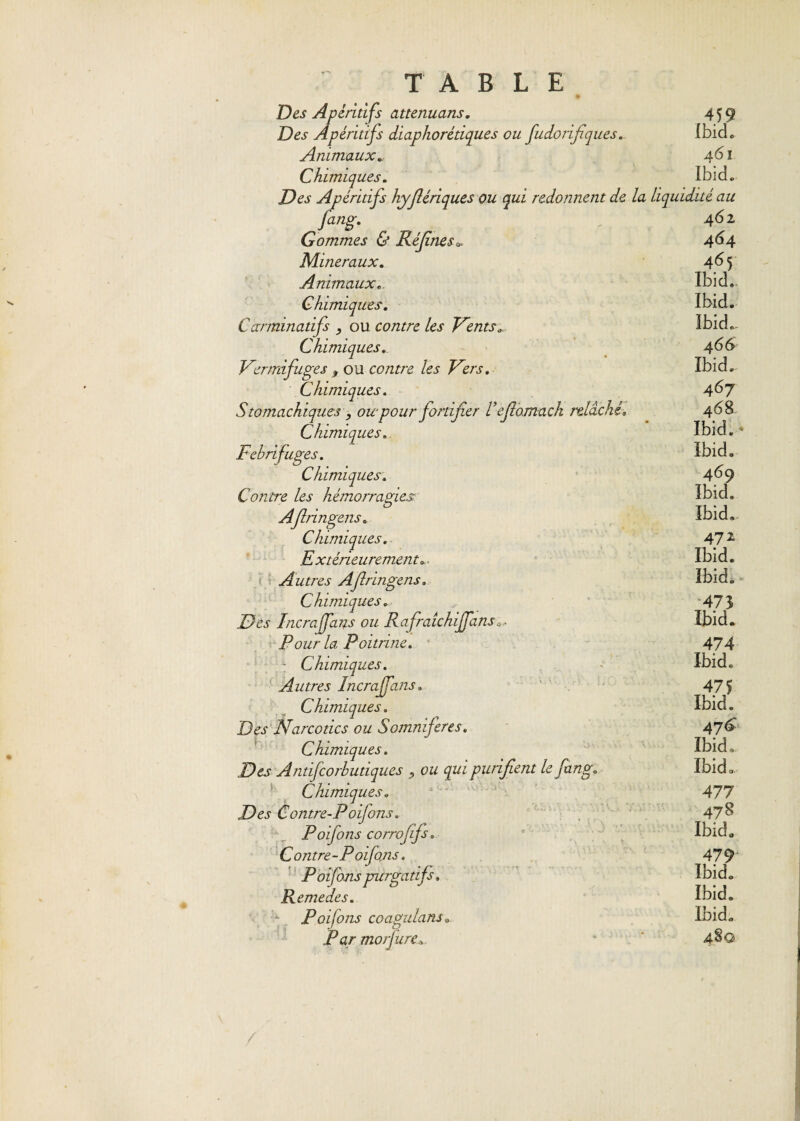 TABLE
Des Apéritifs attenuans. 459
Des Apéritifs diaphorétiques ou ſudorifiques. Ibid.
Animaux. 461
Chimiques. Ibid.
Des Apéritifs hyſtériques ou qui redonnent de la liquidité au
ſang. 462
Gommes & Réſines. 464
Mineraux. 465
Animaux. Ibid.
Chimiques. Ibid.
Carminatifs, ou contre les Vents. Ibid.
Chimiques. 466
Vermifuges, ou contre les Vers. Ibid.
Chimiques. 467
Stomachiques, ou pour fortifier l'eſtomach relâché. 468
Chimiques. Ibid.
Febrifuges. Ibid.
Chimiques. 469
Contre les hémorragies Ibid.
Aſtringens. Ibid.
Chimiques. 472
Extérieurement. Ibid.
Autres Aſtringens. Ibid.
Chimiques. 473
Des Incraſſans ou Rafraîchiſſans. Ibid.
Pour la Poitrine. 474
Chimiques. Ibid.
Autres Incraſſans. 475
Chimiques. Ibid.
Des Narcotics ou Somniferes. 476
Chimiques. Ibid.
Des Antiſcorbutiques, ou qui purifient le ſang. Ibid.
Chimiques. 477
Des Contre-Poiſons. 478
Poiſons corroſifs. Ibid.
Contre-Poiſons. 479
Poiſons purgatifs. Ibid.
Remedes. Ibid.
Poiſons coagulans. Ibid.
Par morſure. 480